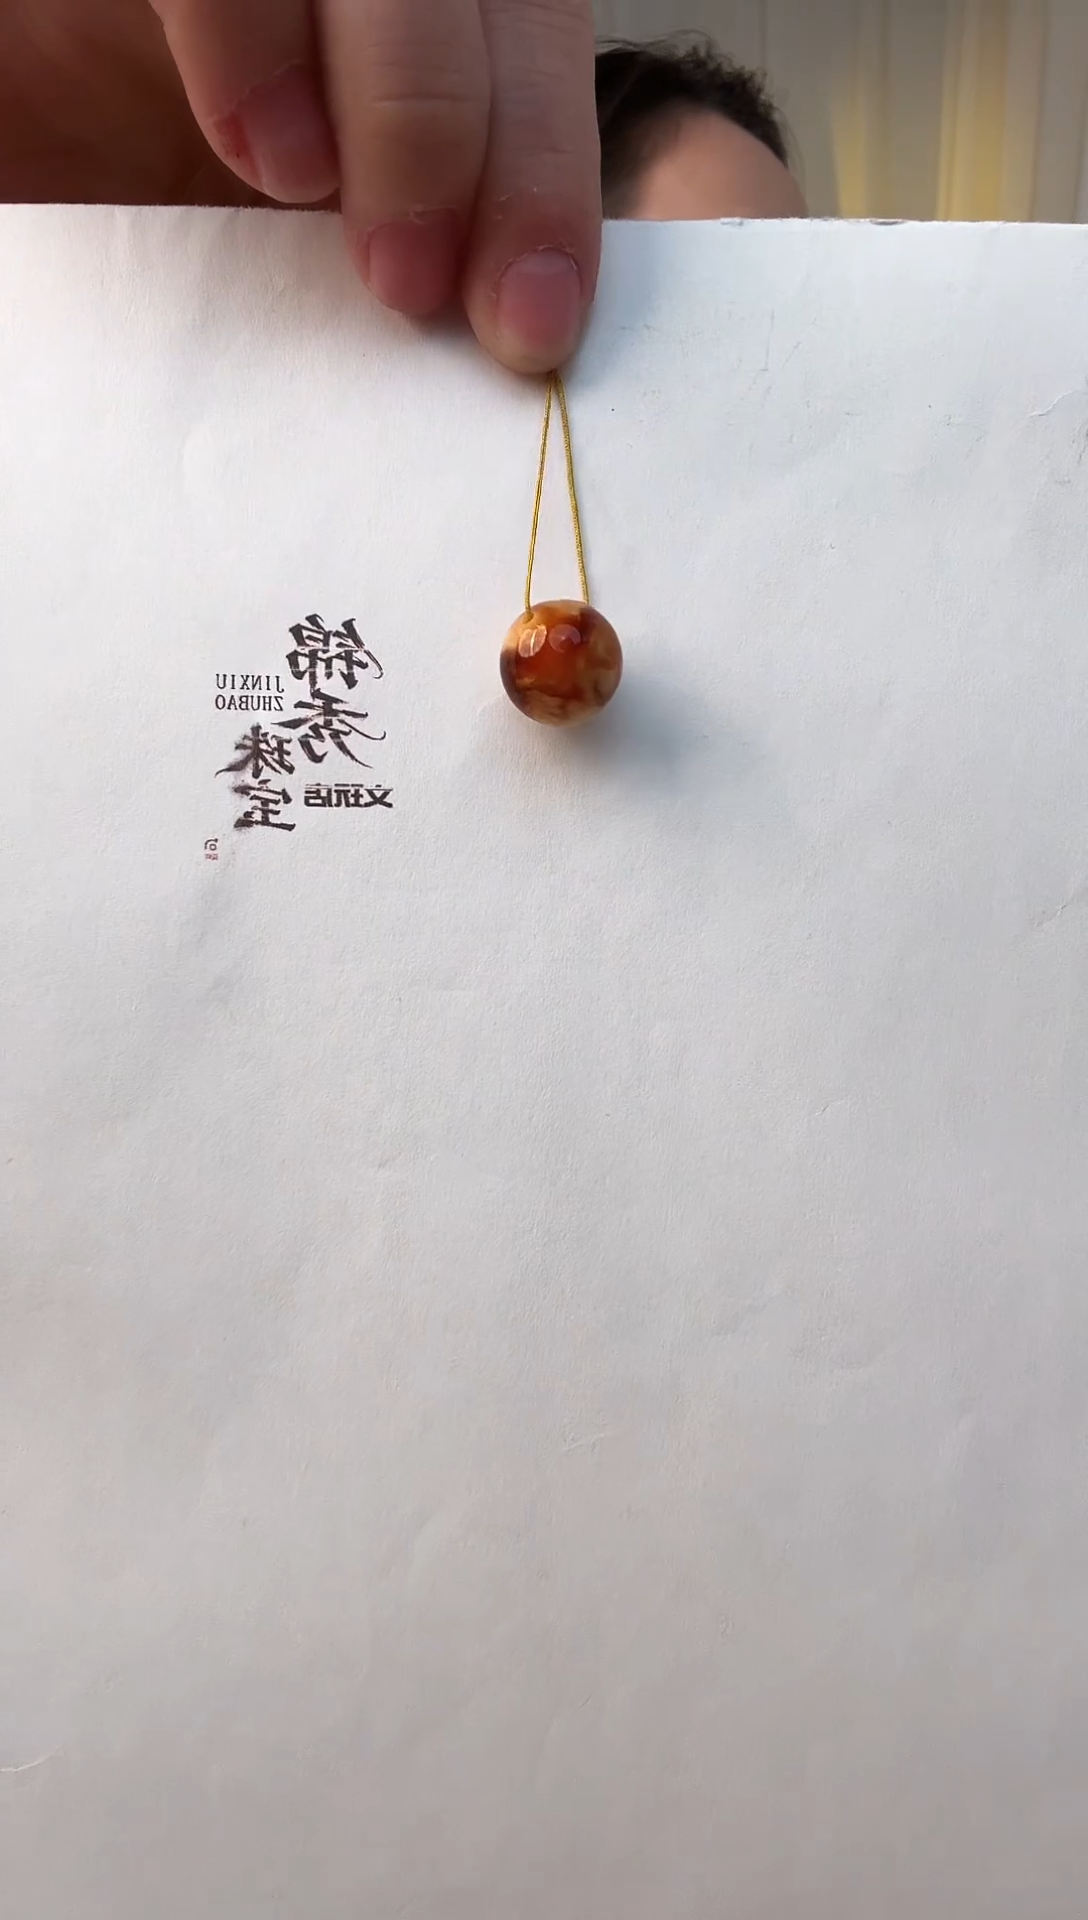 锦秀
JINXIU
ZHUBAO
珠宝
文玩店